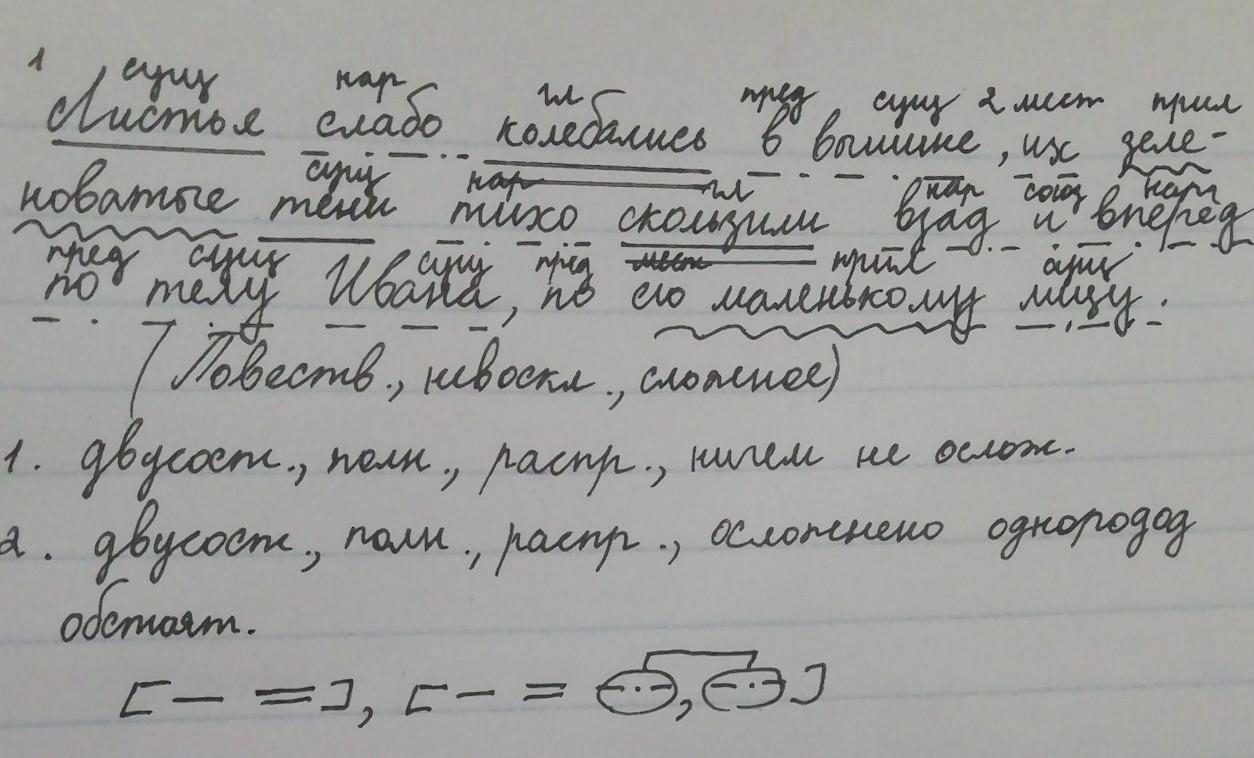 1 сущ нар гл пред сущ 2 мест прил
Листья слабо колебались в вышине, их зеле-
сущ нар гл нар союз нар
новатые тени тихо скользили взад и вперёд
пред сущ сущ пред мест прил сущ
по телу Ивана, по его маленькому лицу.
(Повеств., невоскл., сложное)
1. двусост., полн., распр., ничем не ослож.
2. двусост., полн., распр., осложнено однородод
обстоят.
[— =], [— = —··—, —··—]